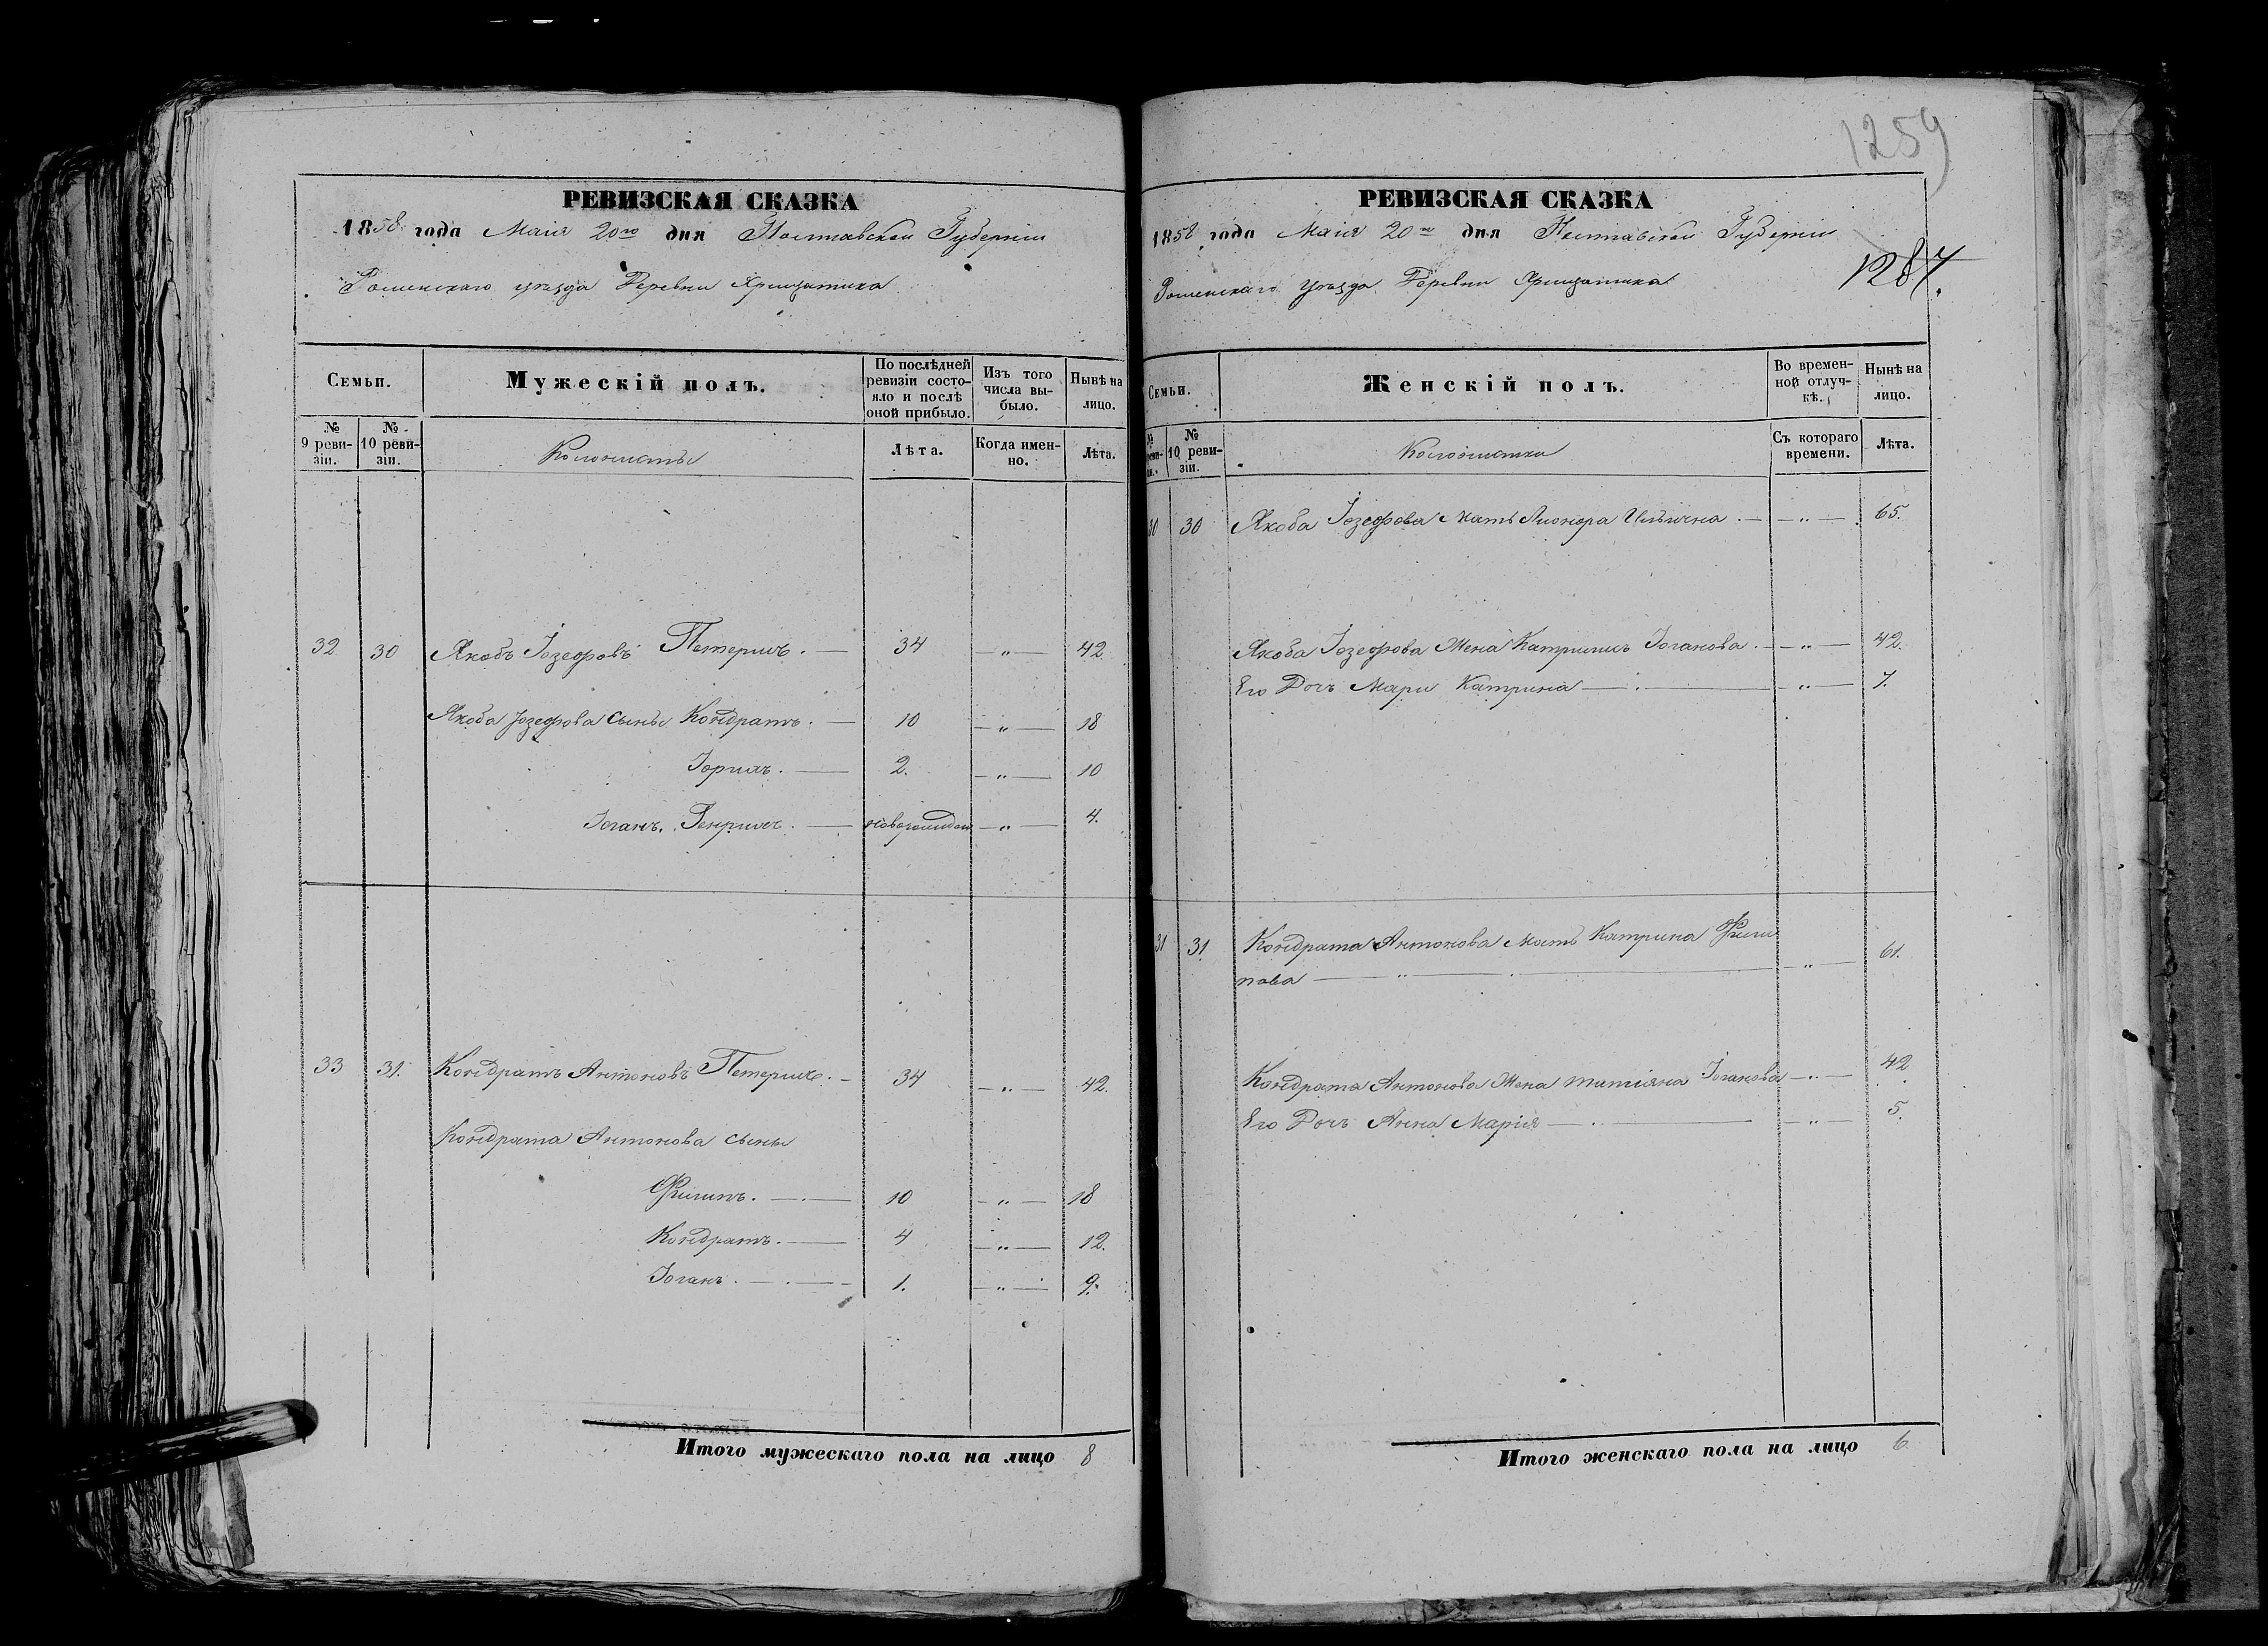 РЕВИЗСКАЯ СКАЗКА
1858 года Маія 20го дня Полтавской Губерніи
Роменскаго уѣзда Деревни Хрищатика
Семьи.
Мужескій полъ.
По послѣдней ревизіи состояло и послѣ оной прибыло.
Изъ того числа выбыло.
Нынѣ на лицо.
№ 9 ревизіи.
№ 10 ревизіи.
Колонисты
Лѣта.
Когда именно.
Лѣта.
32 30 Якобъ Іозефовъ Петерихъ. — 34 — „ — 42
Якоба Іозефова сыны Кондратъ. — 10 — „ — 18
Іорихъ. — 2. — „ — 10
Іоганъ. Генрихъ. — новорожден — „ — 4.
33 31. Кондратъ Антоновъ Петерихъ. — 34 — „ — 42.
Кондрата Антонова сыны
Филипъ. — 10 — „ — 18
Кондратъ. — 4 — „ — 12.
Іоганъ. — 1. — „ — 9.
Итого мужескаго пола на лицо 8
1259
РЕВИЗСКАЯ СКАЗКА
1858 года Маія 20го дня Полтавской Губерніи
Роменскаго уѣзда Деревни Хрищатика
1287.
Семьи.
Женскій полъ.
Во временной отлучкѣ.
Нынѣ на лицо.
№ 10 ревизіи.
Колонистки
Съ котораго времени.
Лѣта.
30 30 Якоба Іозефова Мать Лионора Ильична. — „ — 65.
Якоба Іозефова Жена Катрина Іоганова. — „ — 42.
Его Дочь Мари Катрина — „ — 7.
31 31. Кондрата Антонова Мать Катрина Фили
пова — „ — 61.
Кондрата Антонова Жена Татіана Іоганова — „ — 42
Его Дочь Анна Марія — „ — 5.
Итого женскаго пола на лицо 6